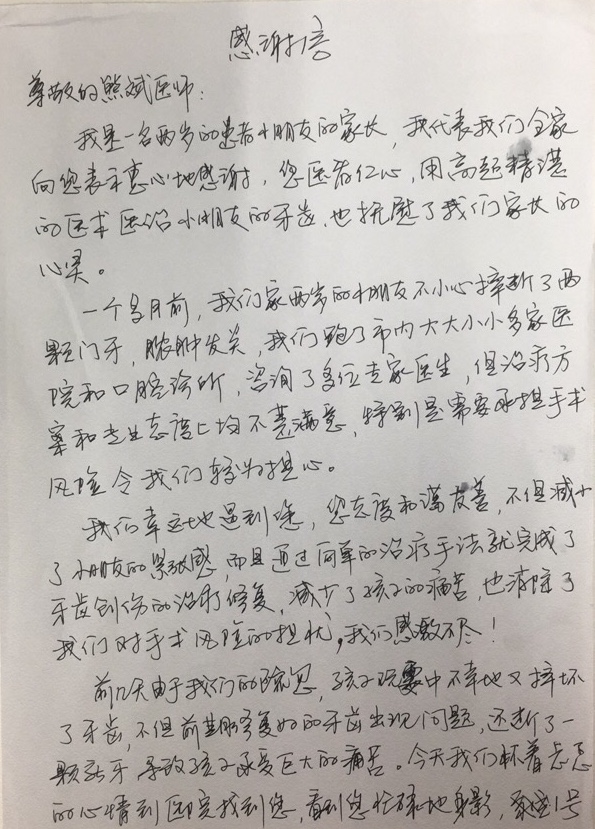 感谢信
尊敬的熊斌医师：
我是一名两岁的患者小朋友的家长，我代表我们全家
向您表示衷心地感谢，您医者仁心，用高超精湛
的医术医治小朋友的牙齿，也抚慰了我们家长的
心灵。
一个多月前，我们家两岁的小朋友不小心摔断了两
颗门牙，脓肿发炎，我们跑了市内大大小小多家医
院和口腔诊所，咨询了多位专家医生，但治疗方
案和专业态度上均不甚满意，特别是需要承担手术
风险令我们较为担心。
我们幸运地遇到您，您态度和蔼友善，不但减少
了小朋友的紧张感，而且通过简单的治疗手法就完成了
牙齿创伤的治疗修复，减少了孩子的痛苦，也消除了
我们对手术风险的担忧，我们感激不尽！
前几天由于我们的疏忽，孩子玩耍中不幸地又摔坏
了牙齿，不但前期修复好的牙齿出现问题，还断了一
颗新牙，导致孩子承受巨大的痛苦。今天我们怀着忐忑
的心情到医院找到您，看到您忙碌地身影，1号